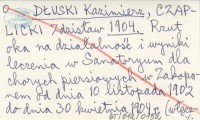 DŁUSKI Kazimierz, CZAP-
LICKI Zdzisław 1904. Rzut
oka na działalność i wyniki
leczenia w Sanatoryum dla
chorych piersiowych w Zakopa-
nem od dnia 10 listopada 1902
do dnia 30 kwietnia 1904 r.